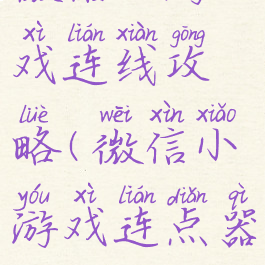 xì lián xiàn gōng
戏连线攻
lüè wēi xìn xiǎo
略(微信小
yóu xì lián diǎn qì
游戏连点器